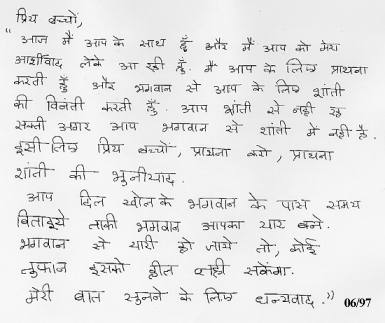 प्रिय बच्चों,
"आज मैं आप के साथ हूँ और मैं आप को मेरा
आर्शीवाद लेके आ रही हूँ. मै आप के लिए प्राथना
करती हूँ और भगवान से आप के लिए शांती
की विनंती करती हूँ. आप शांती से नही रह
सक्ती अगर आप भगवान से शांती में नही है.
इसी लिए प्रिय बच्चों, प्राथना करो, प्राथना
शांती की भुनीयाद.
आप दिल खोलके भगवान के पास समय
बिताइये ताकी भगवान आपका यार बने.
भगवान से यारी हो जाये तो, कोई
तुफान इसको छीत नही सकेंगा.
मेरी बात सुनने के लिए धन्यवाद." 06/97